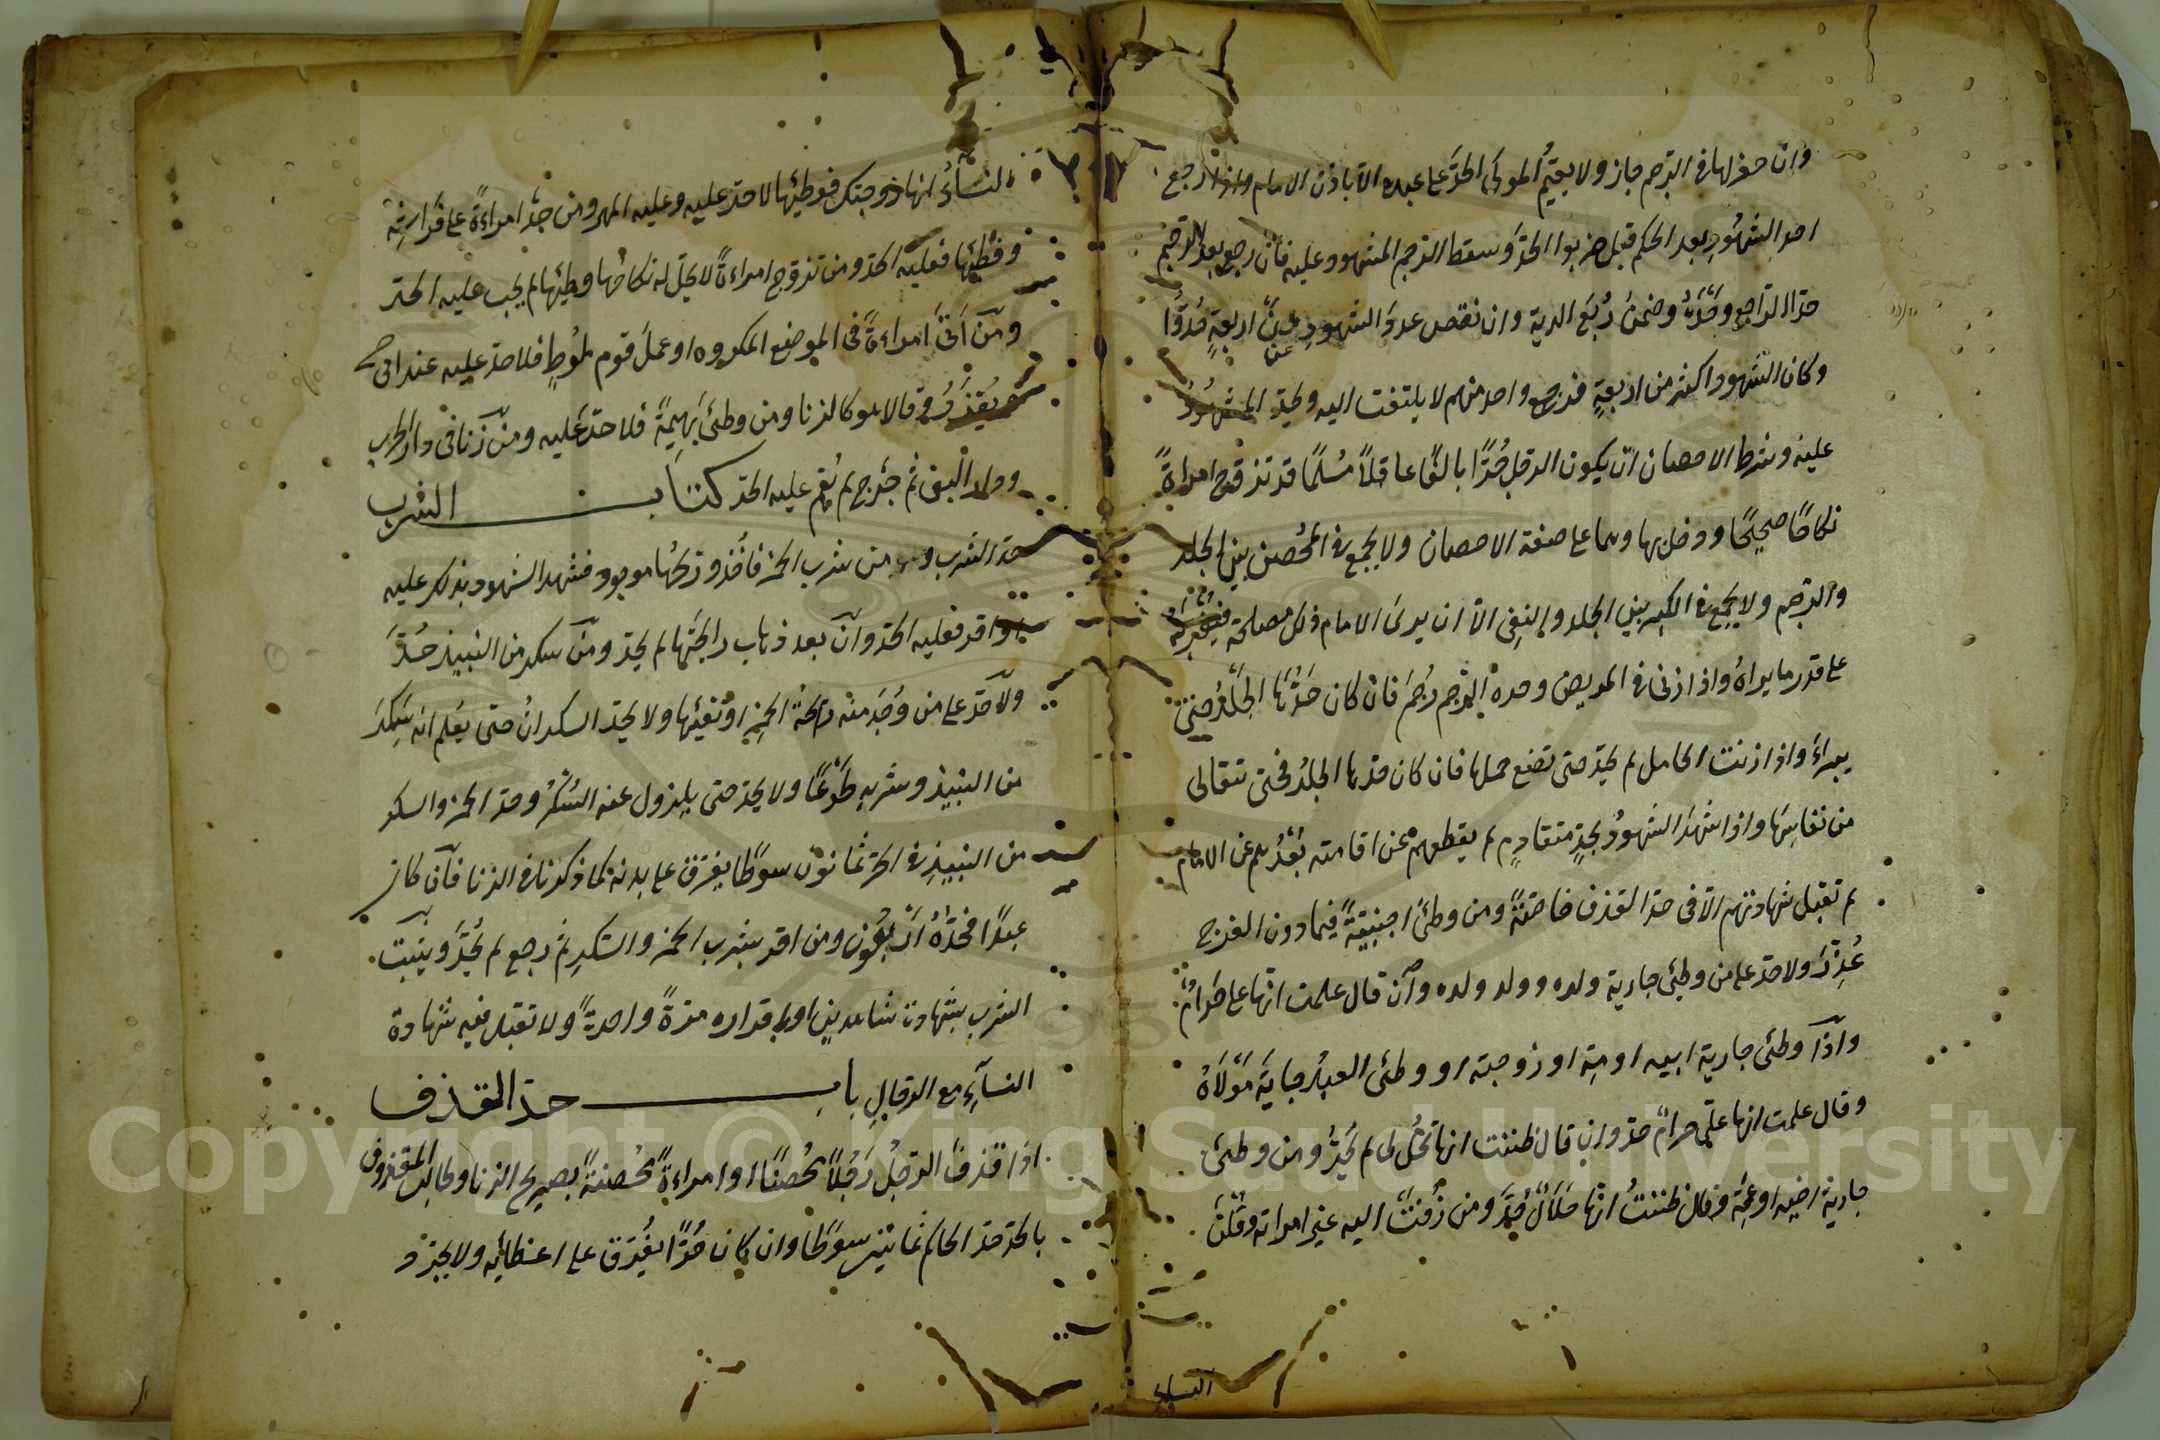 وان حفر لها في الرجم جاز ولا يقيم المولى الحدّ على عبده الا باذن الامام واذا رجع
احد الشهود بعد الحكم قبل ضربوا الحدّ وسقط الرجم المشهود عليه فان رجع بعد الرجم
حدّ الراجع وحده وضمن ربع الدية وان نقص عدد الشهود عن اربعة حدّوا
وكان الشهود اكثر من اربعة فرجع واحد منهم لا يلتفت اليه ويحدّ المشهود
عليه وشرط الاحصان ان يكون الرجل حرّا بالغًا عاقلًا مسلمًا قد تزوج امراة
نكاحًا صحيحًا ودخل بها وهما على صفة الاحصان ولا يجمع في المحصن بين الجلد
والرجم ولا يجمع في البكر بين الجلد والنفي الا ان يرى الامام ذلك مصلحة فيغرّبه
على قدر ما يراه واذا زنى في المريض وحده الرجم رجم فان كان حدّها الجلد حتى
يبراء واذا زنت الحامل لم تحدّ حتى تضع حملها فان كان حدّها الجلد فحتى تتعالى
من نفاسها واذا شهد الشهود بحدّ متقادم لم يقطعهم عن اقامته بعدهم عن الامام
لم تقبل شهادتهم الا في حدّ القذف خاصّةً ومن وطئ اجنبيةً فيما دون الفرج
عزّر ولا حد على من وطئ جارية ولده وولد ولده وان قال علمت انها على حرام
واذا وطئ جارية ابيه او امه او زوجته او وطئ العبد جاية مولاه
وقال علمت انها علي حرام حدّ وان قال ظننت انها تحل لي لم يحدّ ومن وطئ
جارية اخيه او عمّه وقال ظننت انها حلال حدّ ومن زفّت اليه غير امراته وقلن
النساء
النسآء انها زوجتك فوطئها لا حدّ عليه وعليه المهر ومن وجد امراءة على فراشه
وفطئها فعليه الحدّ ومن تزوج امراءةً لا يحلّ له نكاحها وطئها لم يجب عليه الحدّ
ومن اتى امراءةً في الموضع المكروه او عمل قوم لوط فلا حدّ عليه عند ابي ح
ويعزّر وقالا هو كالزنا ومن وطئ بهيمةً فلا حدّ عليه ومن زنا في دار الحرب
ودار البغي ثم خرج لم يقم عليه الحدّ كتاب الشرب
حدّ الشرب ومن شرب الخمر فاخذ وريحها موجود فشهد الشهود بذلك عليه
او اقر فعليه الحدّ وان بعد ذهاب رايحتها لم يحدّ ومن سكر من النبيذ حدّ
ولا حدّ على من وجد منه رايحة الخمر او تقيّئها ولا يحدّ السكران حتى يعلم انه سكر
من النبيذ وشربه طوعًا ولا يحدّ حتى يزول عنه السكر وحدّ الخمر والسكر
من النبيذ في الحرّ ثمانون سوطًا يفرق على بدنه كما ذكرنا في الزنا فان كان
عبدًا فحدّه اربعون ومن اقر بشرب الخمر والسكر ثم رجع لم يحدّ ويثبت
الشرب بشهادة شاهدين او باقراره مرّةً واحدةً ولا تقبل فيه شهادة
النسآء مع الرجال باب حدّ القذف
اذا قذف الرجل رجلًا محصنًا او امراءةً محصنةً بصريح الزنا وطالب المقذوف
بالحدّ حدّه الحاكم ثمانين سوطًا وان كان حرًّا يفرّق على اعضائه ولا يجرد